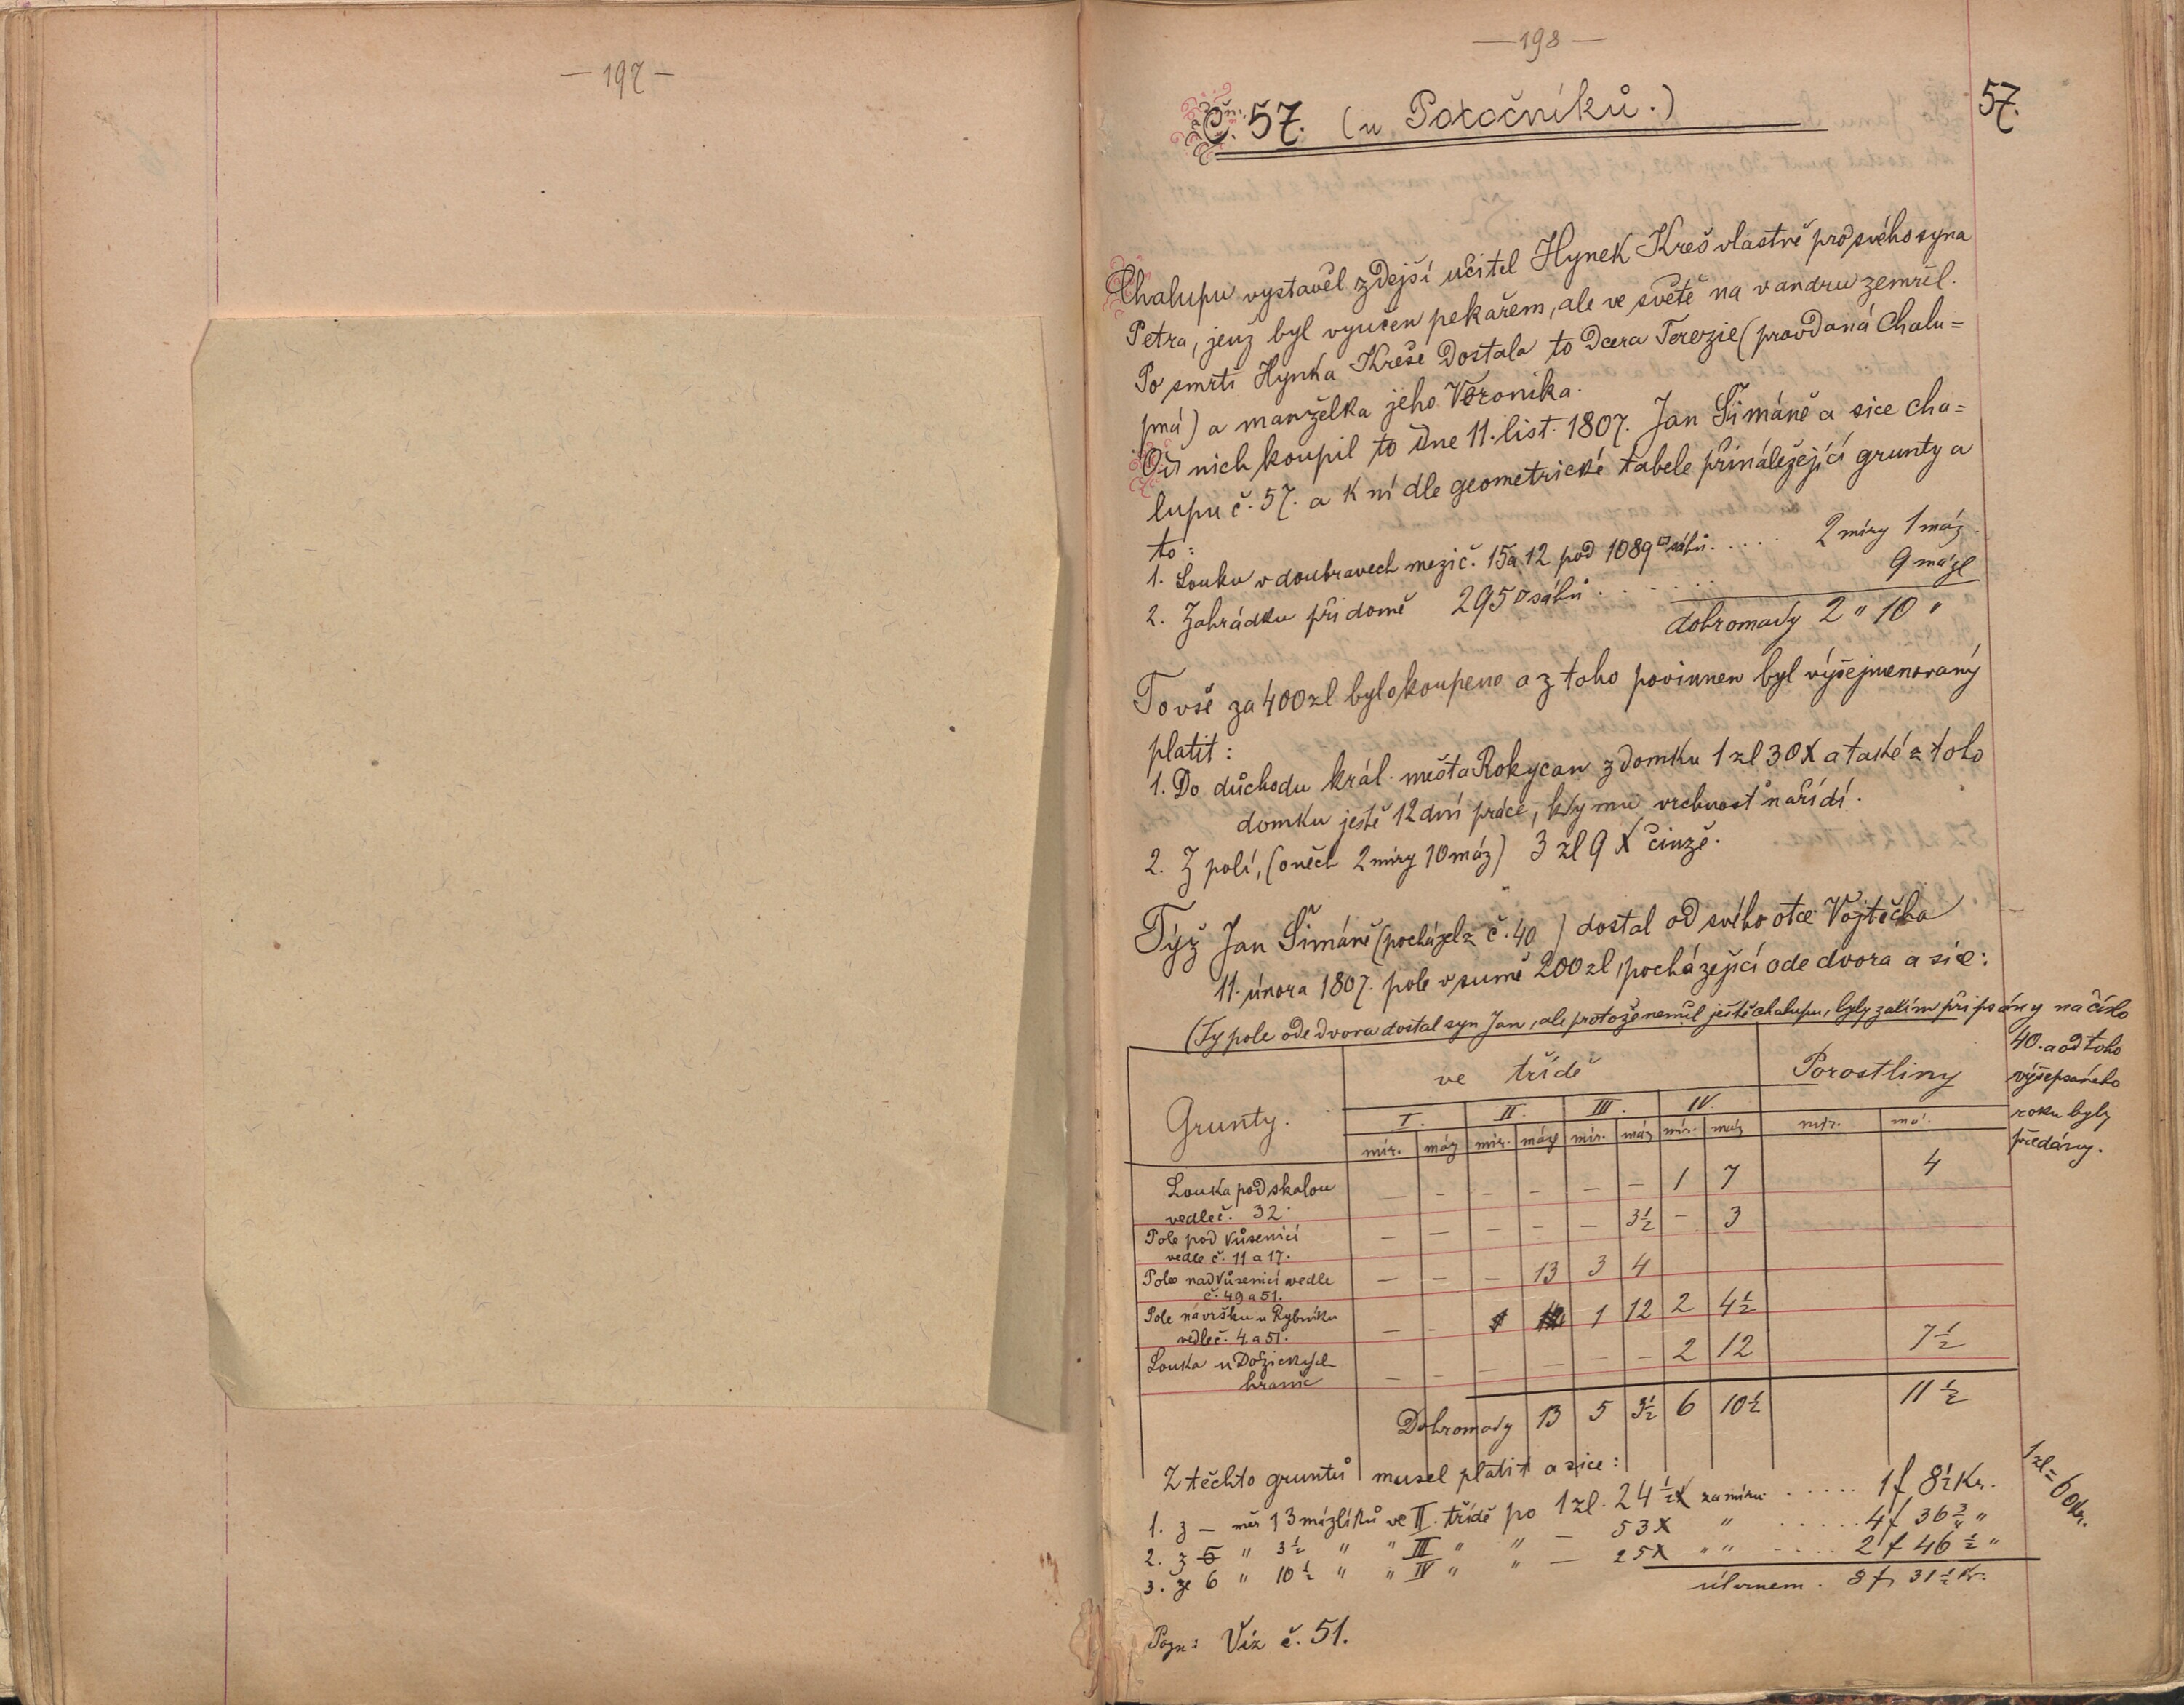 — 197 —
— 198 —
57.
Č. 57. (u Potočníků.)
Chalupu vystavěl zdejší učitel Hynek Kreš vlastně pro svého syna
Petra, jenž byl vyučen pekařem, ale ve světě na vandru zemřel.
Po smrti Hynka Kreše dostala to dcera Terezie (provdaná Chalu=
pná) a manželka jeho Voronika.
Od nich koupil to dne 11. list. 1807. Jan Šimáně a sice cha=
lupu č. 57. a k ní dle geometrické tabele přináležející grunty a
to:
1. Louku v doubravech mezi č. 15 a 12 pod 1089 □ sáhů ..... 2 míry 1 máz.
2. Zahrádku při domě 295 □ sáhů ...... 9 mázl
dohromady 2 " 10 "
To vše za 400 zl bylo koupeno a z toho povinnen byl výšejmenovaný
platit:
1. Do důchodu král. města Rokycan z domku 1 zl 30 X a také z toho
domku ještě 12 dní práce, kdy mu vrchnosť nařídí.
2. Z polí, (oněch 2 míry 10 máz) 3 zl 9 X činže.
Týž Jan Šimáně (pocházel z č. 40) dostal od svého otce Vojtěcha
11. února 1807. pole v sumě 200 zl, pocházející ode dvora a sice:
(Ty pole ode dvora dostal syn Jan, ale protože neměl ještě chalupu, byly zatím připsány na číslo
40. a od toho
výšepsaného
roku byly
předány.
Grunty. ve třídě Porostliny
I. II. III. IV.
mír. máz mír. mázl mír. máz mír. máz mír. má.
Louka pod skalou
vedle č. 32. — — — — — — 1 7 4
Pole pod Vůsenicí
vedle č. 11 a 17. — — — — — 3½ — 3
Pole nad Vůsenicí vedle
č. 49 a 51. — — — 13 3 4
Pole na vršku u Rybníku
vedle č. 4 a 51. — — 1 12 2 4½
Louka u Dožických
hranic — — — — — — 2 12 7½
Dohromady 13 5 3½ 6 10½ 11½
Z těchto gruntů musel platit a sice:
1. z — měr 13 mázlíků ve II. třídě po 1 zl. 24½ X za míru ..... 1 f 8½ Kr.
2. z 5 " 3½ " " III " " — 53 X " ..... 4 f 36¾ "
3. ze 6 " 10½ " " IV " " — 25 X " " .... 2 f 46½ "
úhrnem. 8 f 31½ Kr.
1 zl = 60 kr.
Pozn: Viz č. 51.